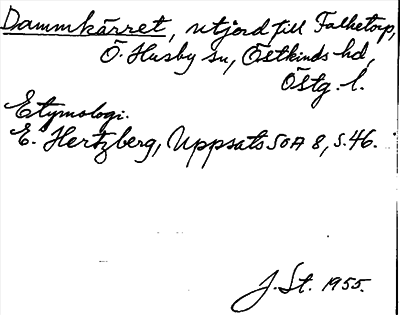 Dammkärret, utjord till Falketorp,
Ö. Husby sn, Östkinds hd,
Östg. l.
Etymologi.
E. Hertzberg, Uppsats SOA 8, s. 46.
J. St. 1955.